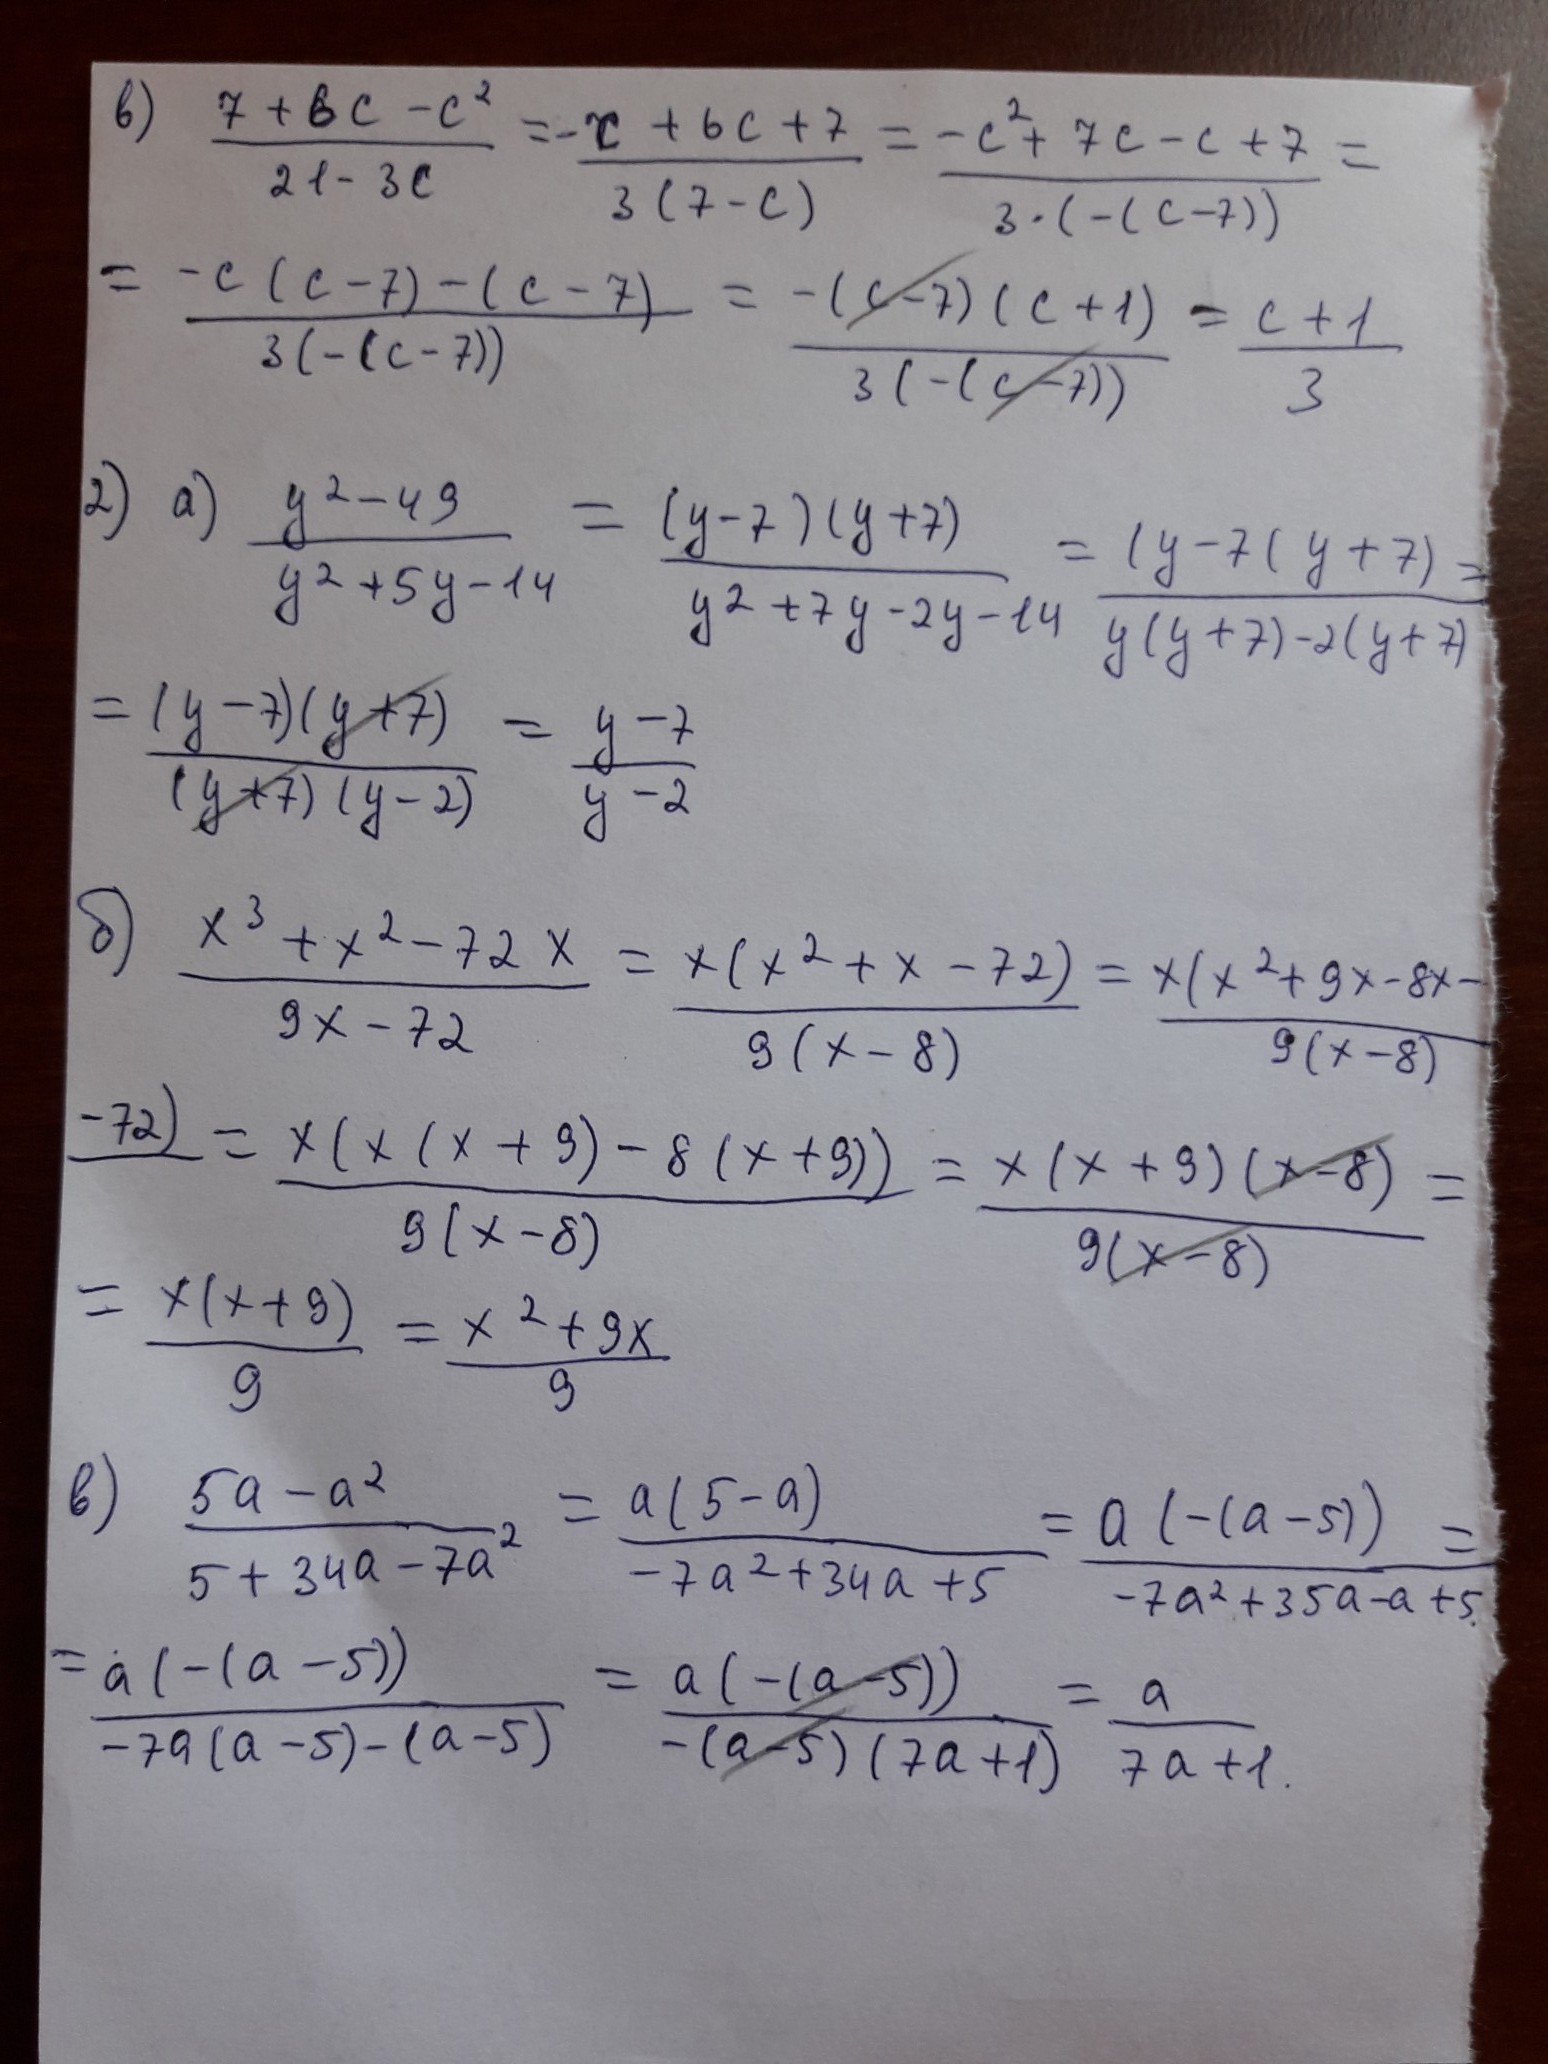 в) (7 + 6c - c²)/(21 - 3c) = (-c + 6c + 7)/(3(7 - c)) = (-c² + 7c - c + 7)/(3·(-(c-7))) =
= (-c(c-7) - (c-7))/(3(-(c-7))) = (-(c-7)(c+1))/(3(-(c-7))) = (c+1)/3
2) а) (y² - 49)/(y² + 5y - 14) = ((y-7)(y+7))/(y² + 7y - 2y - 14) = ((y-7(y+7))/(y(y+7) - 2(y+7) =
= ((y-7)(y+7))/((y+7)(y-2)) = (y-7)/(y-2)
б) (x³ + x² - 72x)/(9x - 72) = (x(x² + x - 72))/(9(x-8)) = (x(x² + 9x - 8x -)/(9(x-8))
-72) = (x(x(x+9) - 8(x+9)))/(9(x-8)) = (x(x+9)(x-8))/(9(x-8)) =
= (x(x+9))/9 = (x² + 9x)/9
в) (5a - a²)/(5 + 34a - 7a²) = (a(5-a))/(-7a² + 34a + 5) = (a(-(a-5)))/(-7a² + 35a - a + 5) =
= (a(-(a-5)))/(-7a(a-5) - (a-5)) = (a(-(a-5)))/(-(a-5)(7a+1)) = a/(7a+1).